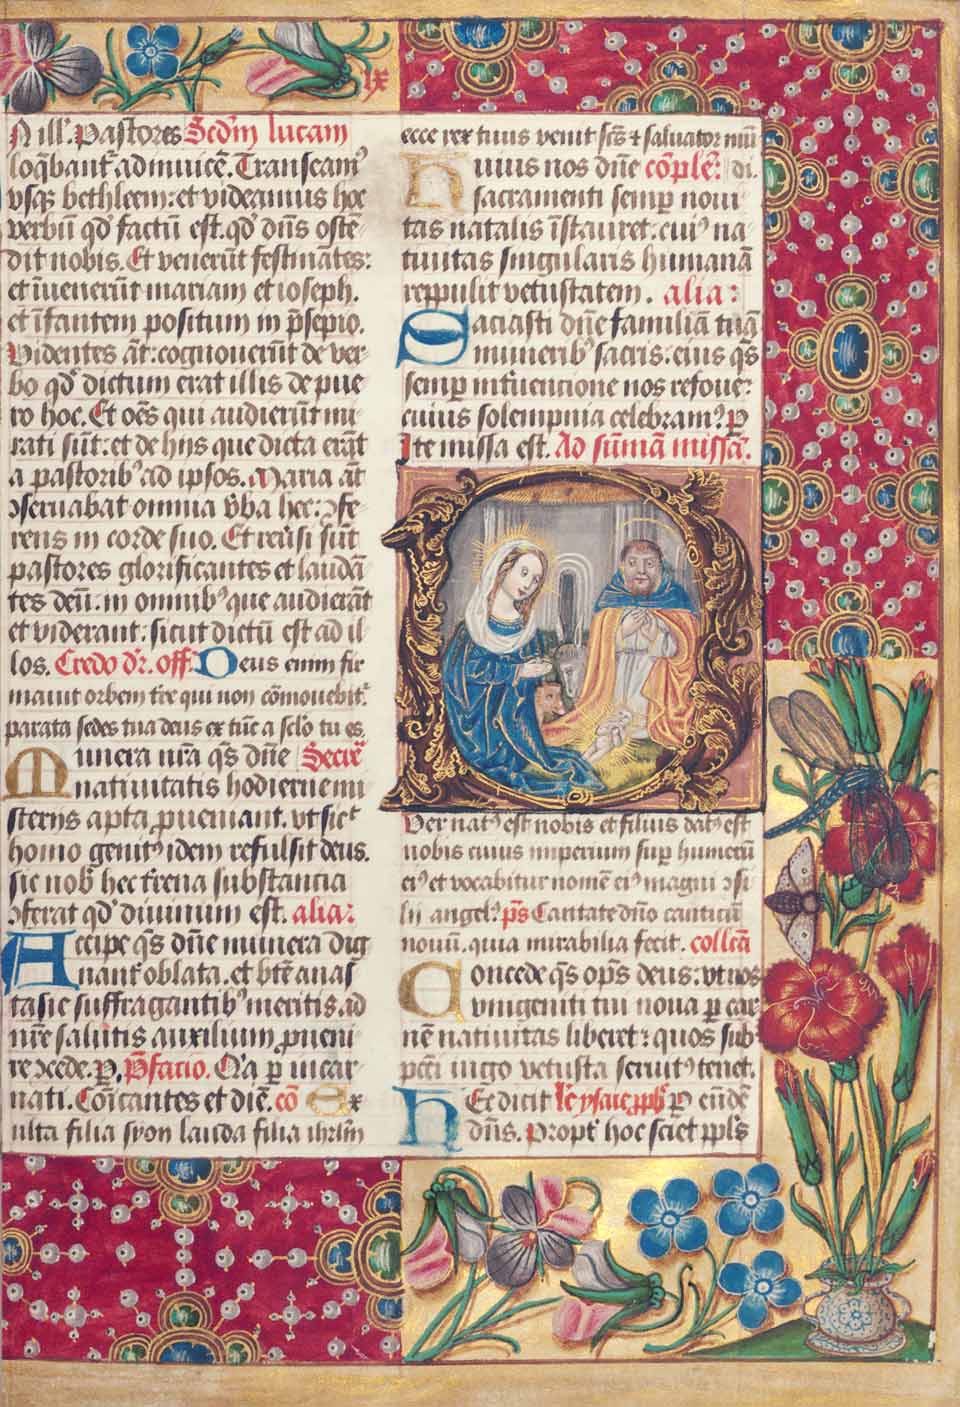 ix
N ill'. Pastores Scd'm lucam
loq̄bant᷑ ad inuicē. Transeam᷒
vsq₃ bethleem: et videamus hoc
verbū qd' factū est. qd' dn̄s ostē-
dit nobis. Et venerūt festinātes:
et īuenerūt mariam et ioseph.
et īfantem positum in p̄sepio.
Videntes āt: cognouerūt de ver-
bo qd' dictum erat illis de pue
ro hoc. Et oēs qui audierūt mi-
rati sūt: et de hijs que dicta erāt
a pastorib᷒ ad ipsos. Maria āt
ↄseruabat omnia v̄ba hec: ↄfe-
rens in corde suo. Et reūsi sūt
pastores glorificantes et laudā-
tes deū: in omnib᷒ que audierāt
et viderant: sicut dictū est ad il-
los. Credo dr̄. off. Deus enim fir
mauit orbem tr̄e qui non cōmouebit᷑.
parata sedes tua deus ex tūc a sclo tu es.
Munera nr̄a q̄s dn̄e Secre᷑
natiuitatis hodierne mi
sterijs apta ꝓueniant. vt sic᷑
homo genit᷒ idem refulsit deus.
sic nob̄ hec t̄rena substancia
ↄferat qd' diuinum est. alia:
Accipe q̄s dn̄e munera dig
nant᷑ oblata. et bt̄e anas
tasie suffragantib᷒ meritis. ad
nr̄e salutis auxilium ꝓueni
re ↄcede. p̱. P̄facio. Q'a p̱ incar
nati. Cōicantes et diē. cō Ex
ulta filia syon lauda filia ihrl̄m
ecce rex tuus venit scs̄ ⁊ saluator mūi
Huius nos dn̄e cōple᷑: di.
sacramenti semp̱ noui
tas natalis īstauret. cui᷒ na
tiuitas singularis humanā
reppulit vetustatem. alia:
Saciasti dn̄e familiā tuā
munerib᷒ sacris. eius q̄s
semp̱ int̄uencione nos refoue:
cuius solempnia celebram᷒. p̱
Ite missa est. Ad sūmā missā.
P
Ver nat᷒ est nobis et filius dat᷒ est
nobis cuius imperium sup̱ humerū
ei᷒ et vocabitur nomē ei᷒ magni ↄsi
lij angel᷒. p̄s Cantate dn̄o canticū
nouū. quia mirabilia fecit. collc̄a
Concede q̄s op̄s deus: vt nos
vnigeniti tui noua p̱ car
nē natiuitas liberet: quos sub
pcti iugo vetusta seruit᷒ tenet.
Hec dicit lc̄ ysaie ꝓph̄ p̱ eundē
dn̄s. Propt᷑ hoc sciet ppl̄s